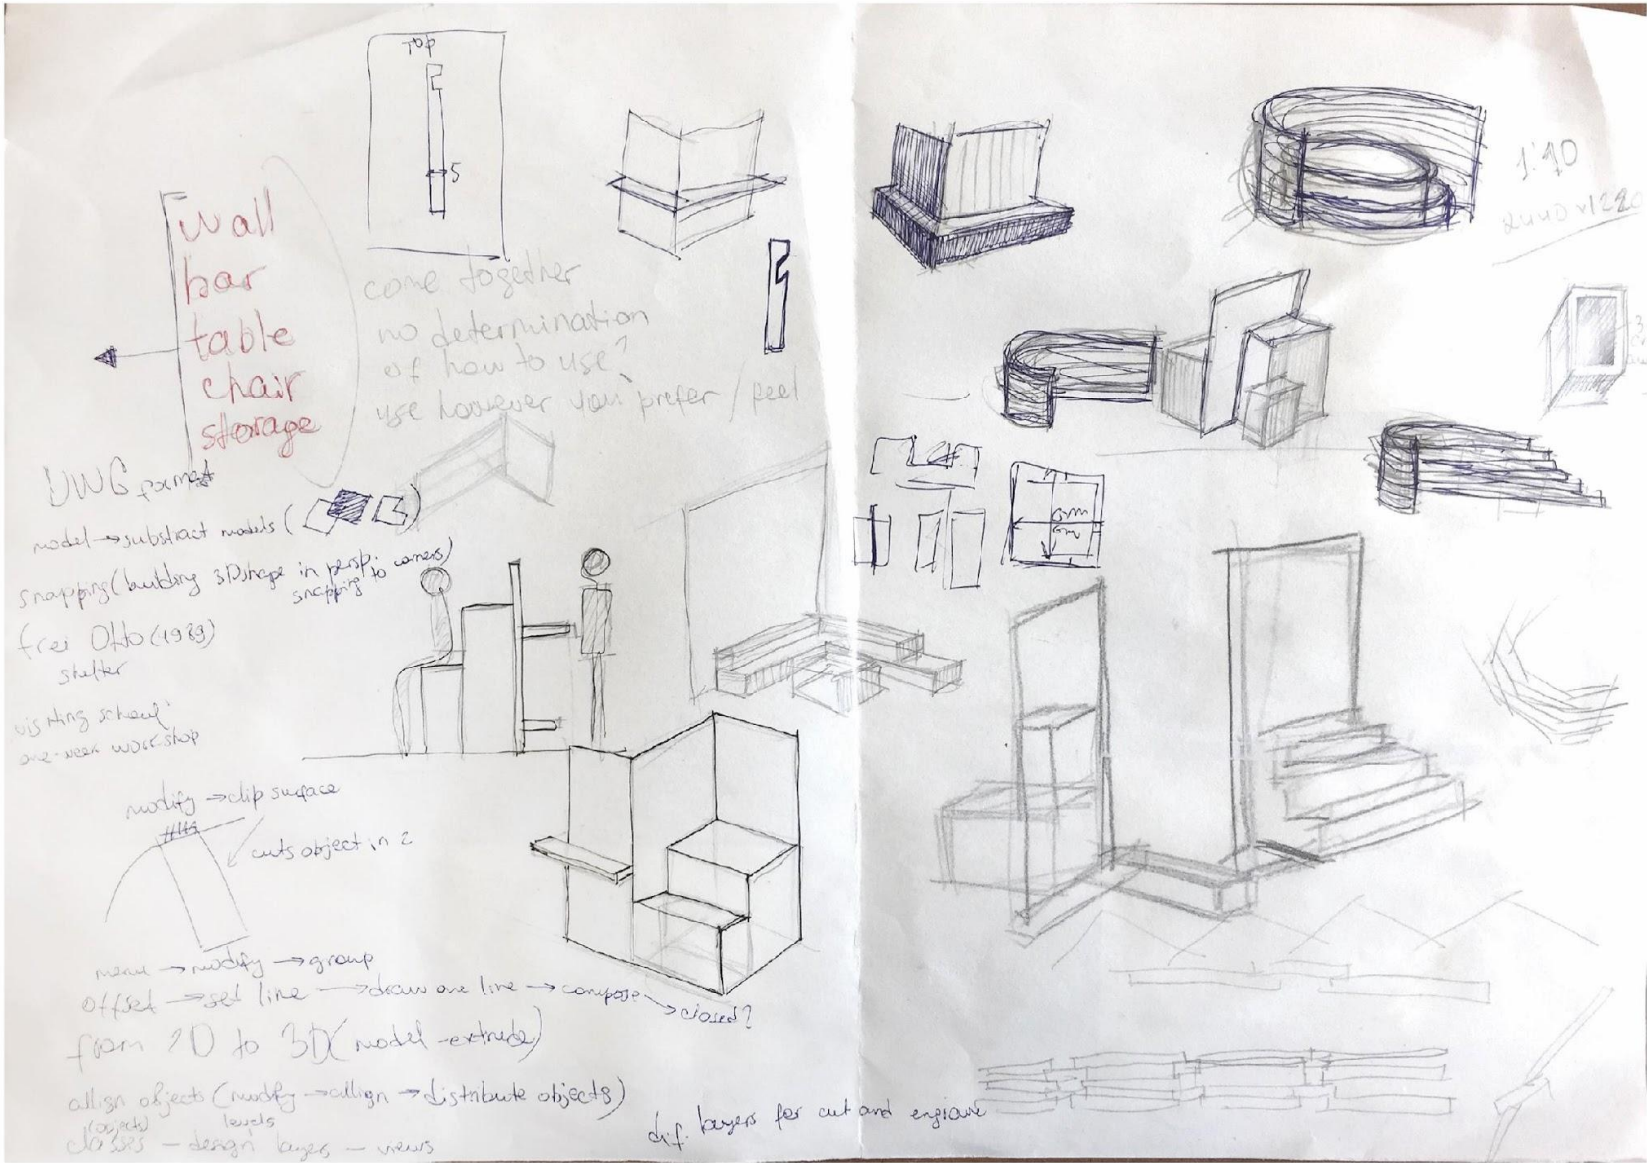 Top
5
wall
bar
table
chair
storage
come together
no determination
of how to use?
use however you prefer / feel
DWG format
model → substract models (
)
snapping (building 3D shape in persp.
snapping to corners)
frei Otto (1989)
shelter
visiting school:
one-week workshop
modify → clip surface
cuts object in 2
menu → modify → group
offset → set line → draw one line → compose → closed?
from 2D to 3D (model - extrude)
allign objects (modify → allign → distribute objects)
(objects) levels
classes - design layers - views
dif. layers for cut and engrave
1:10
2440 x 1220
3